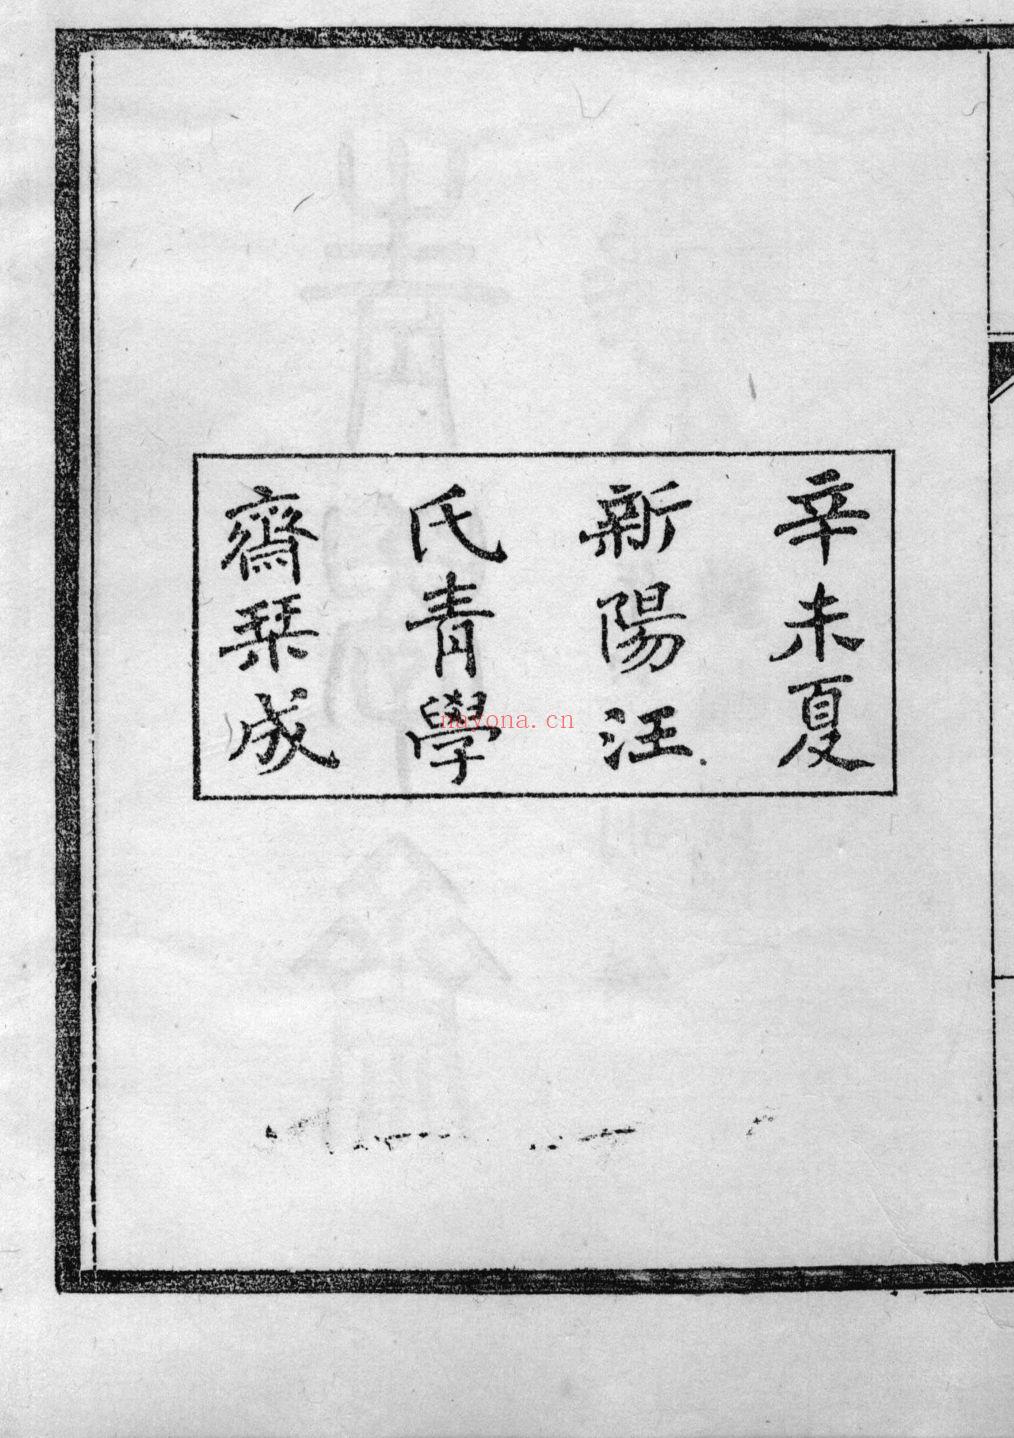 辛未夏
新陽汪
氏青學
齋栞成
nayona.cn